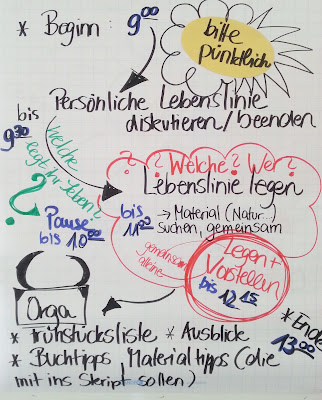 * Beginn : 9⁰⁰
bitte
pünktlich
Persönliche Lebenslinie
diskutieren/beenden
bis
9³⁰
welche
legt ihr/leben?
?
Pause
bis 10⁰⁰
? Welche? Wer?
Lebenslinie legen
bis
11⁰⁰
→ Material (Natur...)
suchen, gemeinsam
gemeinsam
alleine
Legen +
Vorstellen
bis 12¹⁵
Orga
* Ende
13⁰⁰
* Frühstücksliste * Ausblick
* Buchtipps Materialtipps (die
mit ins Skript sollen)